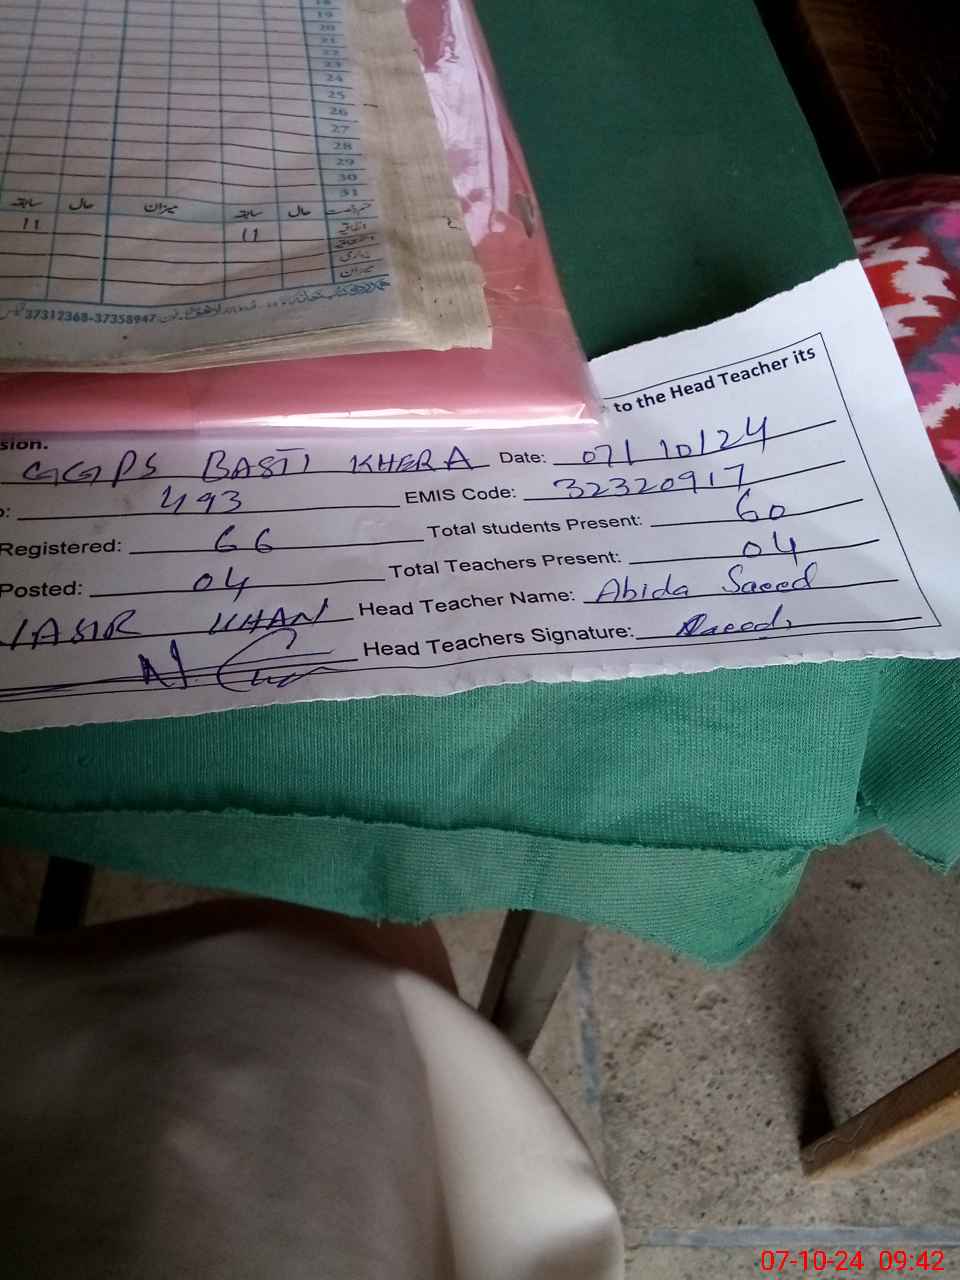 18
19
20
21
22
23
24
25
26
27
28
29
30
31
سابقہ حال میزان سابقہ حال
11 11
میزان
37312368-37358947
to the Head Teacher its
sion.
GGPS BASTI KHERA Date: 07/10/24
493 EMIS Code: 32320917
Registered: 66 Total students Present: 60
Posted: 04 Total Teachers Present: 04
KHAN Head Teacher Name: Abida Saeed
Head Teachers Signature: Saeed
07-10-24 09:42